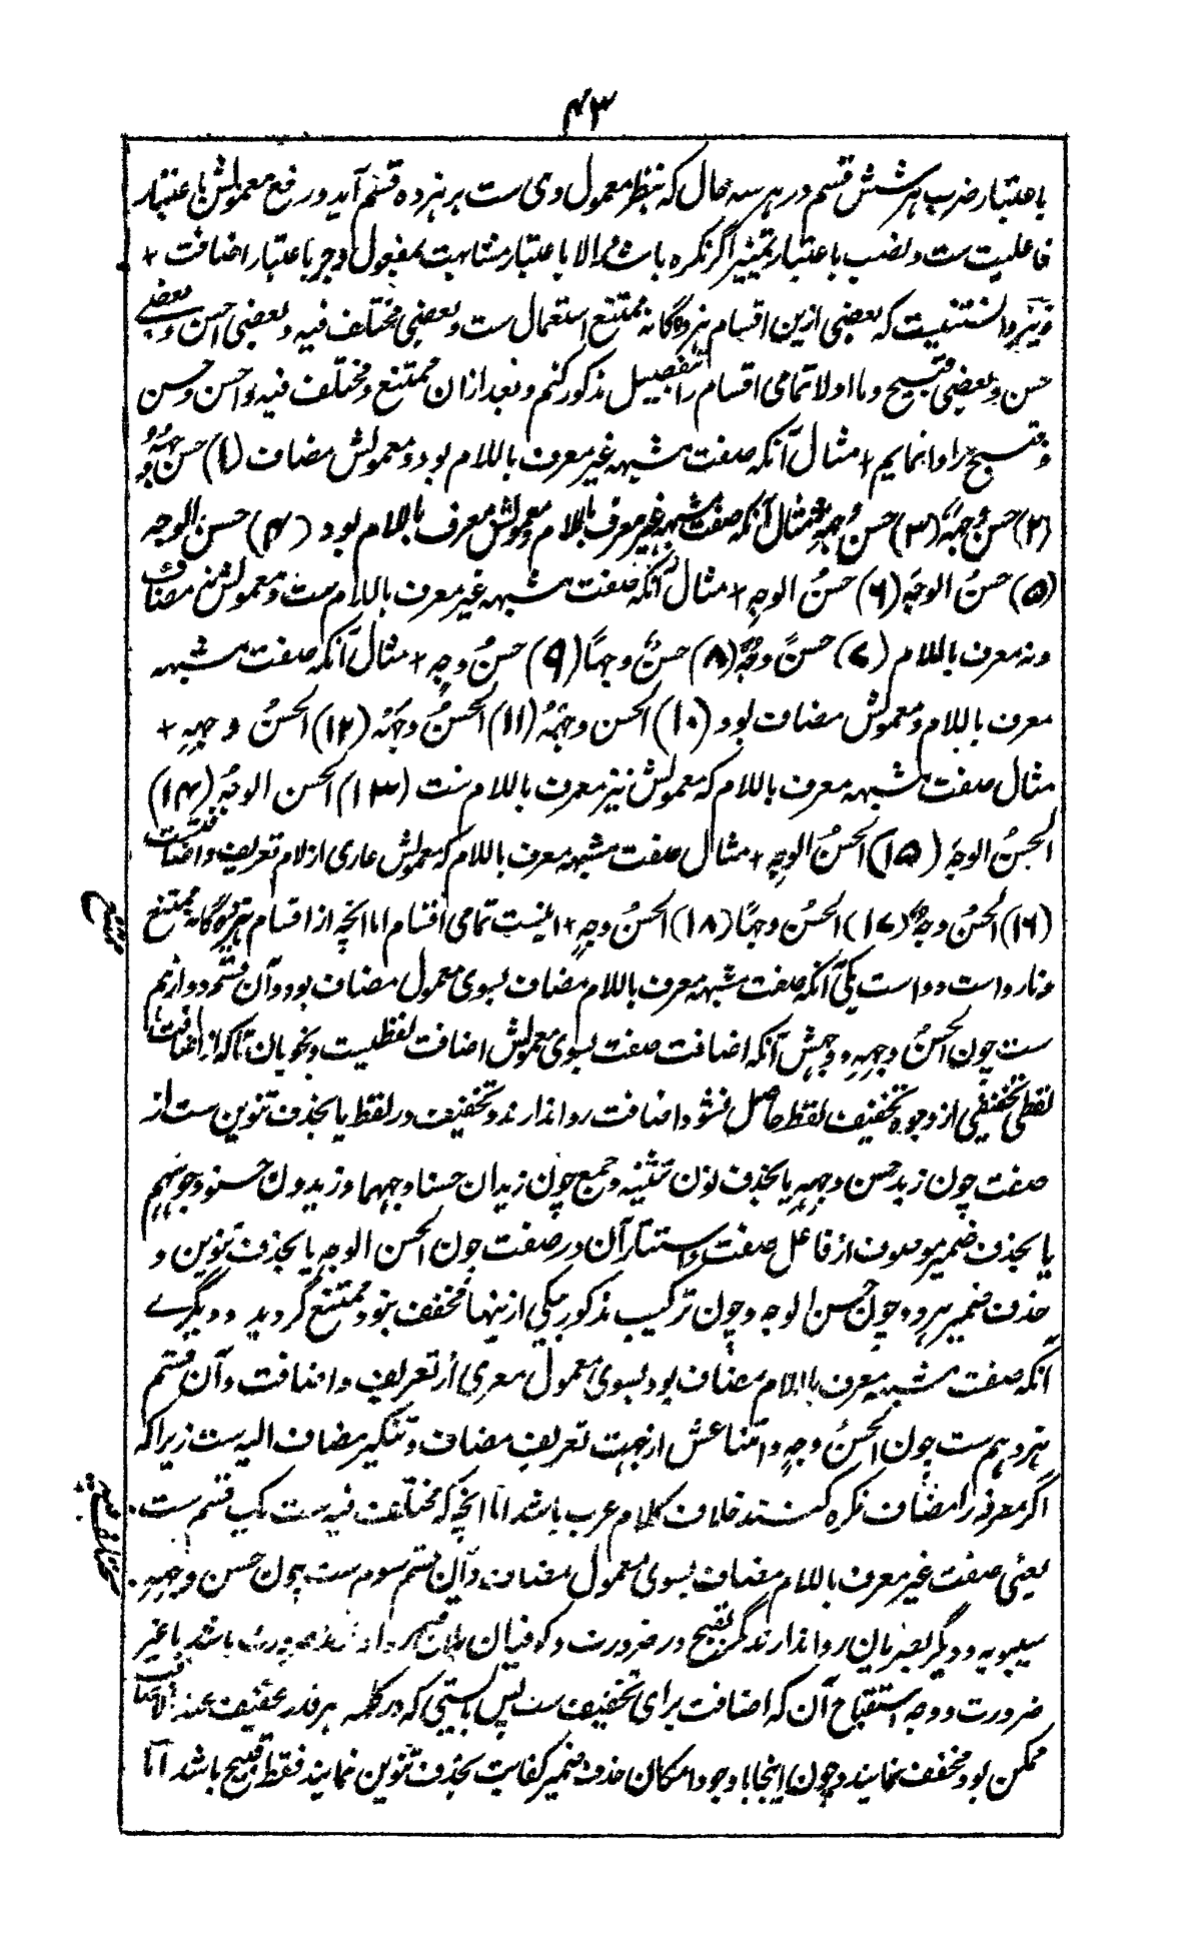 ۴۳
باعتبار ضرب هر شش قسم در هر سه حال که بنظر معمول وی ست بر هژده قسم آید و رفع معمولش باعتبار
فاعلیت ست و نصب باعتبار تمییز اگر نکره باشد و الا باعتبار مشابهت بمفعول و جر باعتبار اضافت +
و نیز دانستنیست که بعضی ازین اقسام هژده گانه ممتنع استعمال ست و بعضی مختلف فیه و بعضی احسن و بعضے
حسن و بعضی قبیح و ما اولا تمامی اقسام را بتفصیل مذکور کنم و بعد ازان ممتنع و مختلف فیه و احسن و حسن
و قبیح را وانمایم + مثال آنکه صفت مشبهه غیر معرف باللام بود و معمولش مضاف (۱) حسنٌ وجهُهُ
(۲) حسنٌ وجهَهُ (۳) حسنُ وجهِهِ مثال آنکه صفت مشبهه غیر معرف باللام و معمولش معرف باللام بود (۴) حسنٌ الوجه
(۵) حسنٌ الوجهَ (۶) حسنُ الوجهِ + مثال آنکه صفت مشبهه غیر معرف باللام ست و معمولش نه مضاف
و نه معرف باللام (۷) حسنٌ وجهٌ (۸) حسنٌ وجهًا (۹) حسنُ وجهٍ + مثال آنکه صفت مشبهه
معرف باللام و معمولش مضاف بود (۱۰) الحسن وجهُهُ (۱۱) الحسنُ وجهَهُ (۱۲) الحسنُ وجهِهِ +
مثال صفت مشبهه معرف باللام که معمولش نیز معرف باللام ست (۱۳) الحسن الوجهُ (۱۴)
الحسنُ الوجهَ (۱۵) الحسنُ الوجهِ + مثال صفت مشبهه معرف باللام که معمولش عاری از لام تعریف و اضافت ست
(۱۶) الحسنُ وجهٌ (۱۷) الحسنُ وجهًا (۱۸) الحسنُ وجهٍ + اینست تمامی اقسام اما آنچه از اقسام هژده گانه ممتنع
و نارواست دو است یکی آنکه صفت مشبهه معرف باللام مضاف بسوی معمول مضاف بود و آن قسم دوازدهم
ست چون الحسنُ وجهِهِ و وجهش آنکه اضافت صفت بسوی معمولش اضافت لفظیست و نحویان تا که از اضافت
لفظی تخفیفی از وجوه تخفیف لفظ حاصل نشود اضافت روا ندارند و تخفیف در لفظ یا بحذف تنوین ست از
صفت چون زید حسن وجهِهِ یا بحذف نون تثنیه و جمع چون زیدان حسنا وجههما و زیدون حسنو وجوههم
یا بحذف ضمیر موصوف از فاعل صفت و استتار آن در صفت چون الحسن الوجه یا بحذف تنوین و
حذف ضمیر هر دو چون حسن الوجه و چون ترکیب مذکور بیکی ازینها مخفف بنود ممتنع گردید و دیگرے
آنکه صفت مشبهه معرف باللام مضاف بود بسوی معمول معری از تعریف و اضافت و آن قسم
هژدهم ست چون الحسنُ وجهٍ و امتناعش از جهت تعریف مضاف و تنکیر مضاف الیه ست زیراکه
اگر معرفه را مضاف نکره کنند خلاف کلام عرب باشد اما آنچه که مختلف فیه ست یک قسم ست
یعنی صفت غیر معرف باللام مضاف بسوی معمول مضاف و آن قسم سوم ست چون حسن وجهِهِ
سیبویه و دیگر بصریان روا ندارند مگر بقبح در ضرورت و کوفیان روا دارند ضرورت باشد یا غیر
ضرورت و وجه استقباح آن که اضافت برای تخفیف ست پس بایستی که در کلمه هر قدر تخفیف عند الاضافت
ممکن بود مخفف نمایند و چون اینجا با وجود امکان حذف ضمیر کفایت بحذف تنوین نمایند فقط قبیح باشد اما
ممتنع
مختلف فیه